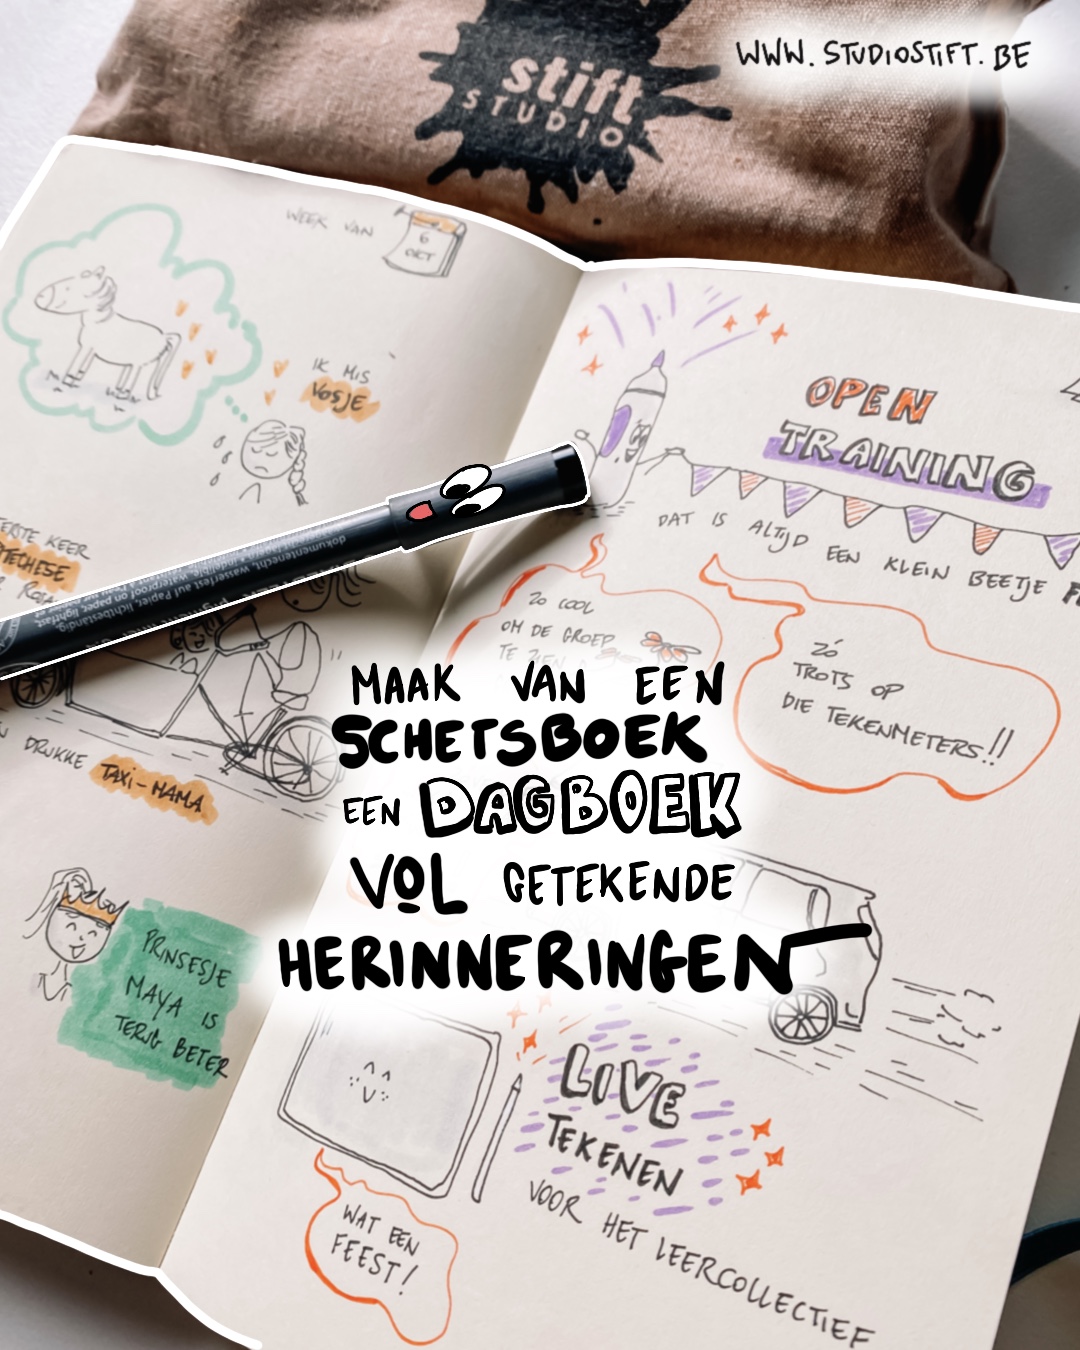 WWW.STUDIOSTIFT.BE
stift
STUDIO
WEEK VAN
6
OKT
IK MIS
VOSJE
EERSTE KEER
DRUKKE TAXI-MAMA
PRINSESJE
MAYA IS
TERUG BETER
OPEN
TRAINING
DAT IS ALTIJD EEN KLEIN BEETJE
ZO COOL
OM DE GROEP
TE ZIEN
ZÓ
TROTS OP
DIE TEKENMETERS!!
MAAK VAN EEN
SCHETSBOEK
EEN DAGBOEK
VOL GETEKENDE
HERINNERINGEN
LIVE
TEKENEN
VOOR HET LEERCOLLECTIEF
WAT EEN
FEEST!